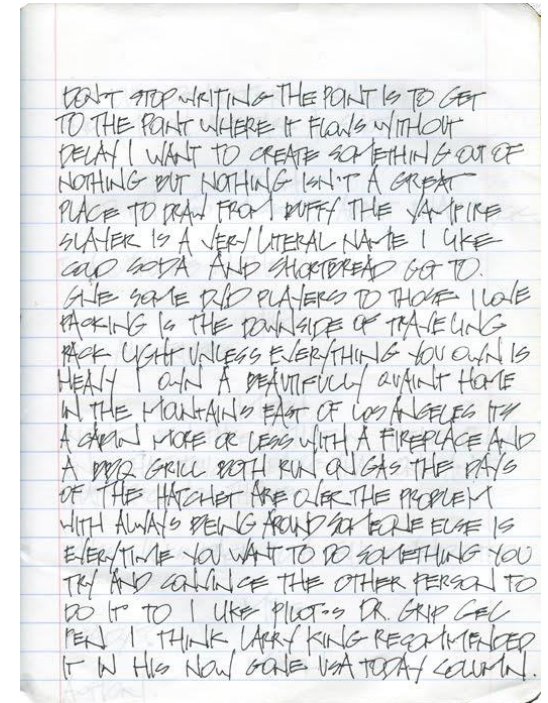 DON'T STOP WRITING THE POINT IS TO GET
TO THE POINT WHERE IT FLOWS WITHOUT
DELAY I WANT TO CREATE SOMETHING OUT OF
NOTHING BUT NOTHING ISN'T A GREAT
PLACE TO DRAW FROM BUFFY THE VAMPIRE
SLAYER IS A VERY LITERAL NAME I LIKE
COLD SODA AND SHORTBREAD GOT TO.
GIVE SOME PLAYERS TO THOSE I LOVE
PACKING IS THE DOWNSIDE OF TRAVELING
PACK LIGHT UNLESS EVERYTHING YOU OWN IS
HEAVY I OWN A BEAUTIFULLY QUAINT HOME
IN THE MOUNTAINS EAST OF LOS ANGELES ITS
A CABIN MORE OR LESS WITH A FIREPLACE AND
A BBQ GRILL BOTH RUN ON GAS THE DAYS
OF THE HATCHET ARE OVER THE PROBLEM
WITH ALWAYS BEING AROUND SOMEONE ELSE IS
EVERYTIME YOU WANT TO DO SOMETHING YOU
TRY AND CONVINCE THE OTHER PERSON TO
DO IT TO I LIKE PILOT'S DR. GRIP GEL
PEN I THINK LARRY KING RECOMMENDED
IT IN HIS NOW GONE USA TODAY COLUMN.